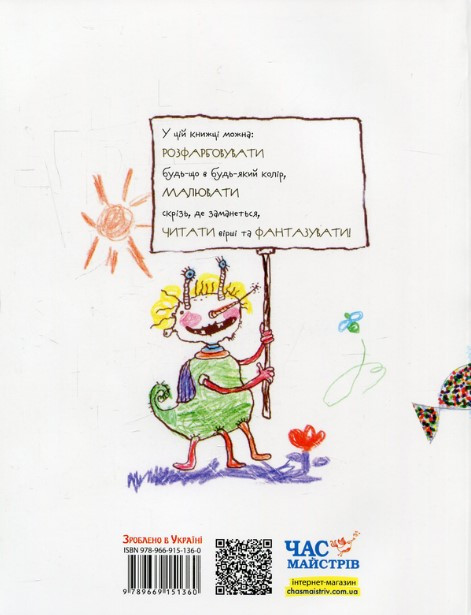 У цій книжці можна:
РОЗФАРБОВУВАТИ
будь-що в будь-який колір,
МАЛЮВАТИ
скрізь, де заманеться,
ЧИТАТИ вірші та ФАНТАЗУВАТИ!
Зроблено в Україні
ISBN 978-966-915-136-0
9 789669 151360
ЧАС
МАЙСТРІВ
інтернет-магазин
chasmaistriv.com.ua